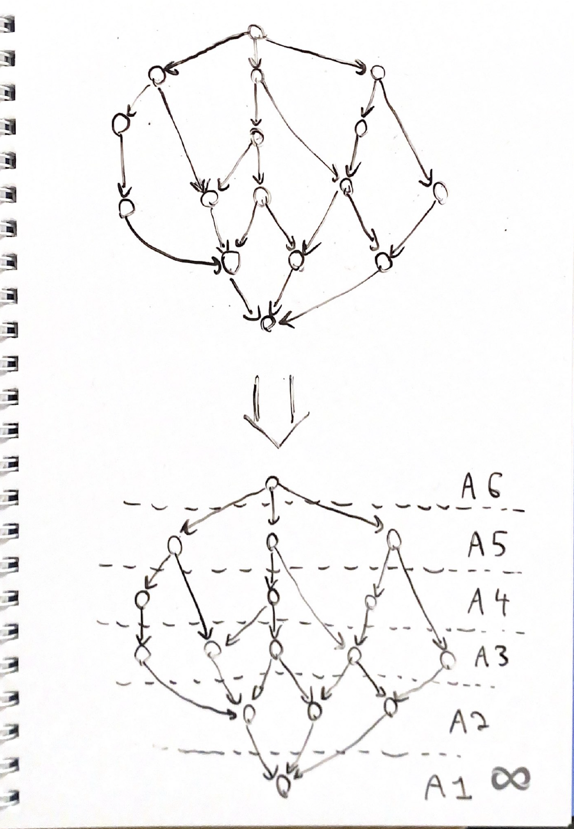 A6
A5
A4
A3
A2
A1 ∞